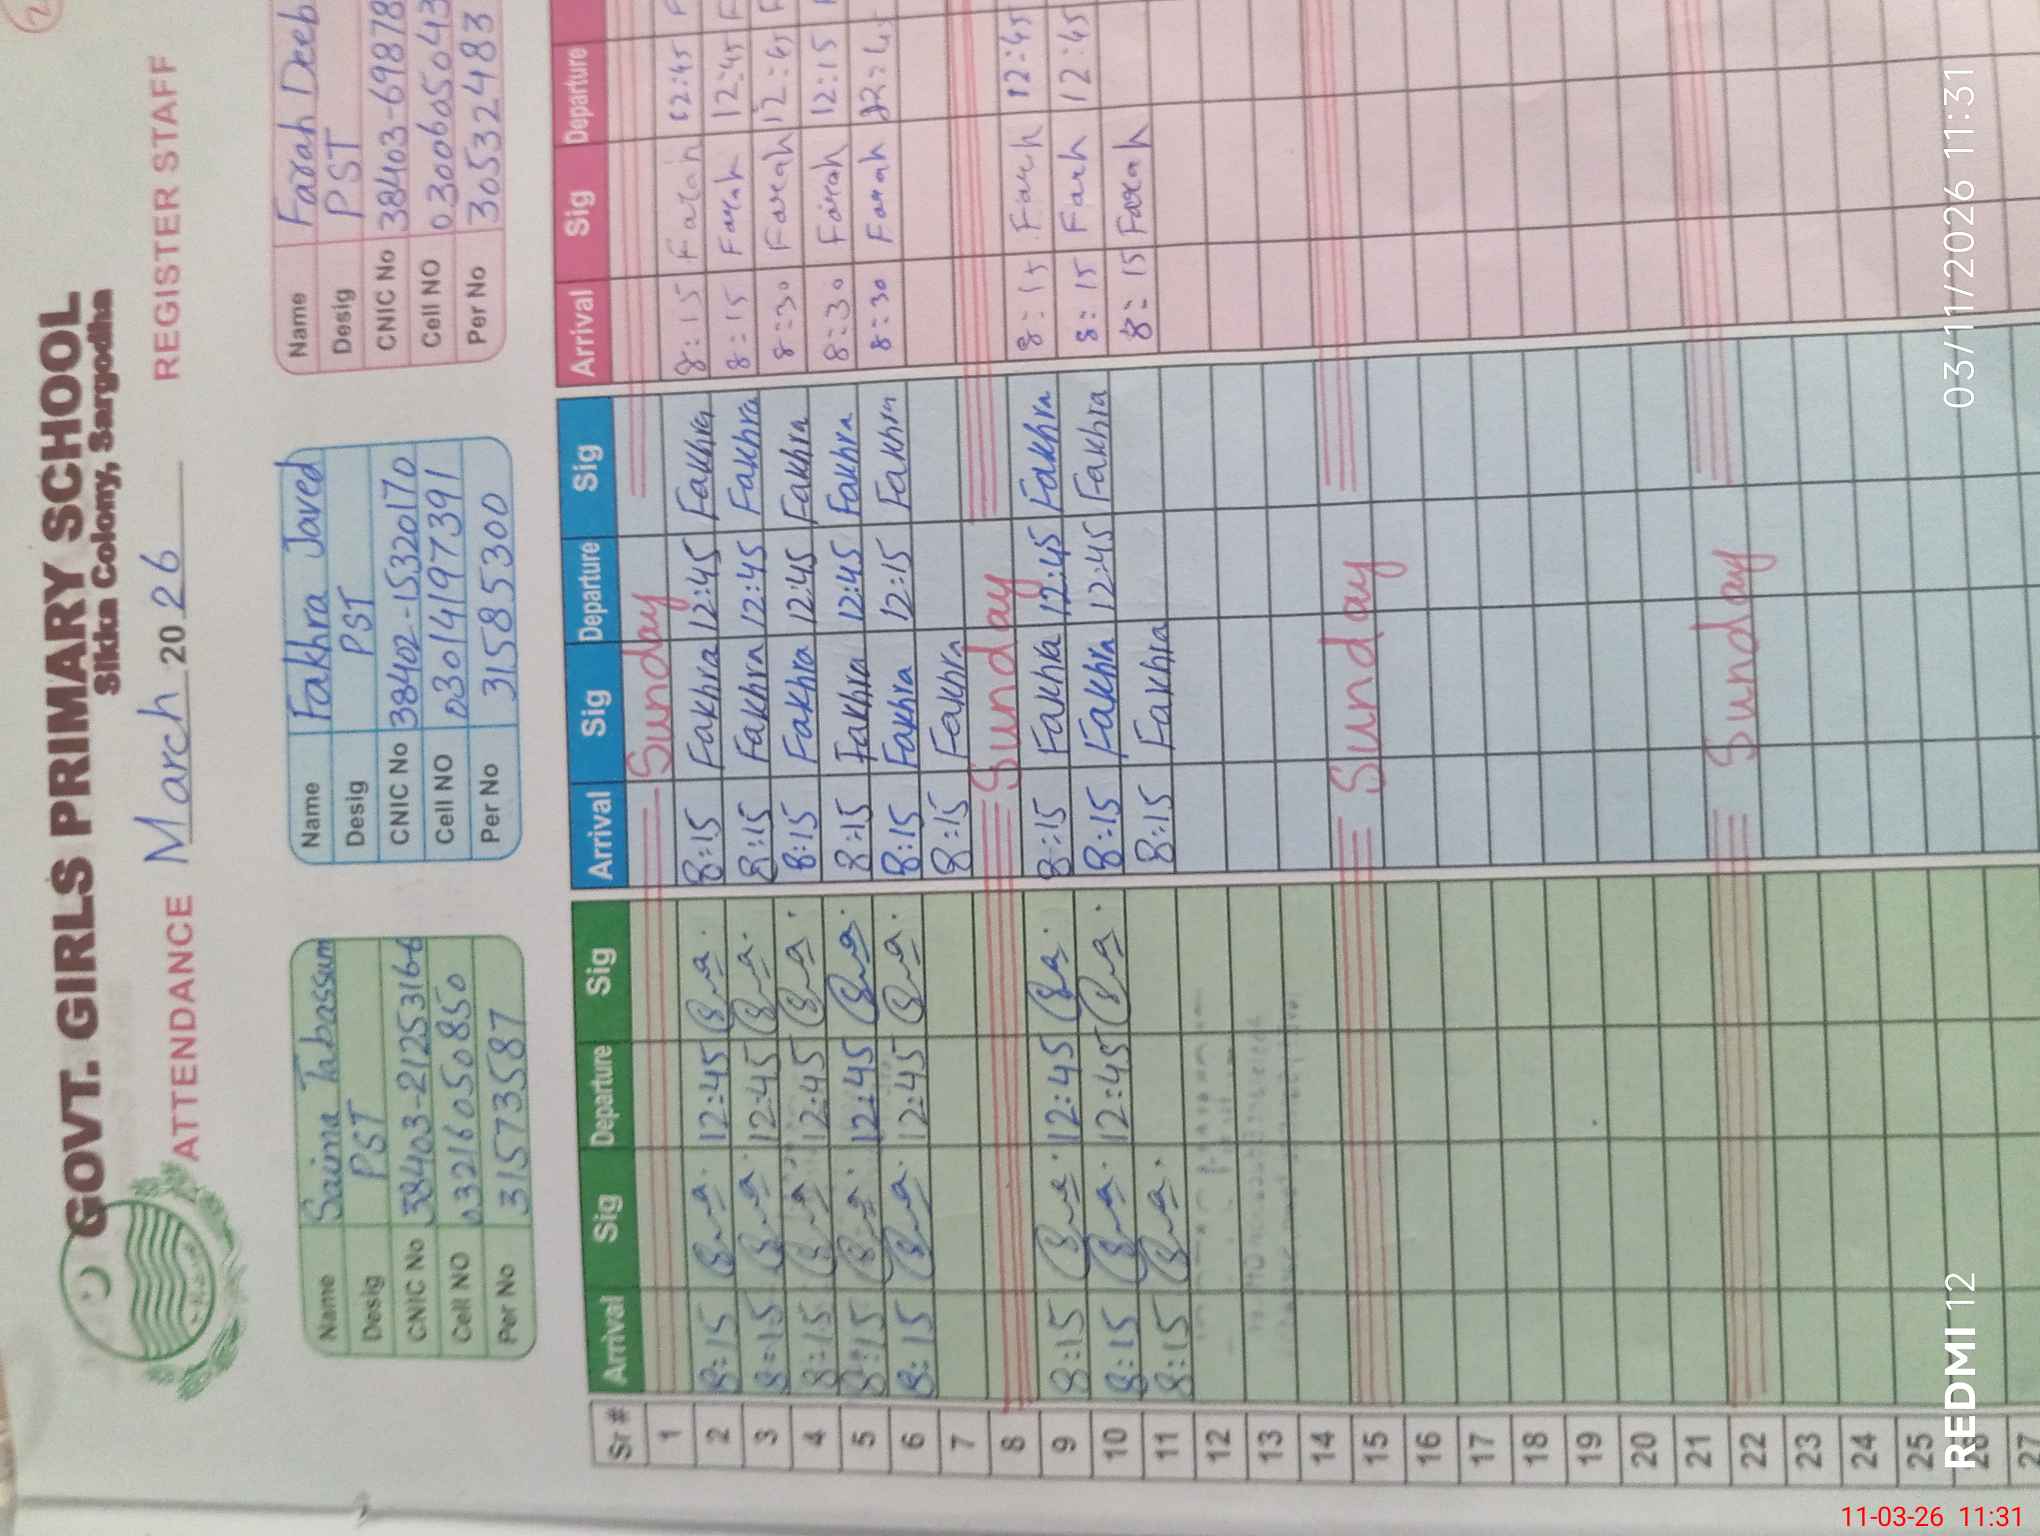 GOVT. GIRLS PRIMARY SCHOOL
Sikka Colony, Sargodha
ATTENDANCE March 2026 REGISTER STAFF
Name Saima Tabassum
Desig PST
CNIC No 38403-2125316-6
Cell NO 03216050850
Per No 31573587
Name Fakhra Javed
Desig PST
CNIC No 38402-15320170
Cell NO 03014197391
Per No 31585300
Name Farah Deeb
Desig PST
CNIC No 38403-69878
Cell NO 0300605043
Per No 30532483
Sr # Arrival Sig Departure Sig Arrival Sig Departure Sig Arrival Sig Departure Sig
1 Sunday
2 8:15 12:45 8:15 Fakhra 12:45 Fakhra 8:15 Farah 12:45
3 8:15 12:45 8:15 Fakhra 12:45 Fakhra 8:15 Farah 12:45
4 8:15 12:45 8:15 Fakhra 12:45 Fakhra 8:30 Farah 12:45
5 8:15 12:45 8:15 Fakhra 12:45 Fakhra 8:30 Farah 12:15
6 8:15 12:45 8:15 Fakhra 12:15 Fakhra 8:30 Farah
7 8:15 Fakhra
8 Sunday
9 8:15 12:45 8:15 Fakhra 12:45 Fakhra 8:15 Farah 12:45
10 8:15 12:45 8:15 Fakhra 12:45 Fakhra 8:15 Farah 12:45
11 8:15 8:15 Fakhra 8:15 Farah
12
13
14
15 Sunday
16
17
18
19
20
21
22 Sunday
23
24
25
26
27
REDMI 12
03/11/2026 11:31
11-03-26 11:31